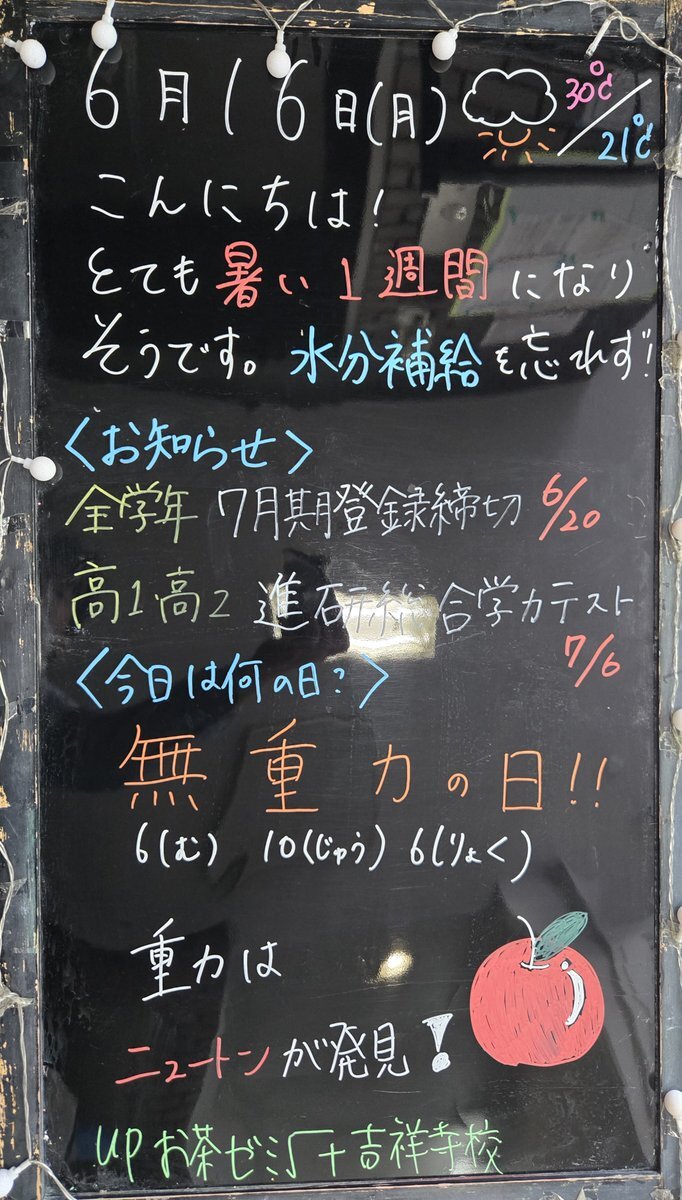 6月16日(月) 30℃/21℃
こんにちは!
とても暑い1週間になり
そうです。水分補給を忘れず!
〈お知らせ〉
全学年 7月期登録締切 6/20
高1高2 進研総合学力テスト
7/6
〈今日は何の日?〉
無重力の日!!
6(む) 10(じゅう) 6(りょく)
重力は
ニュートンが発見!
UPお茶ゼミ√+吉祥寺校